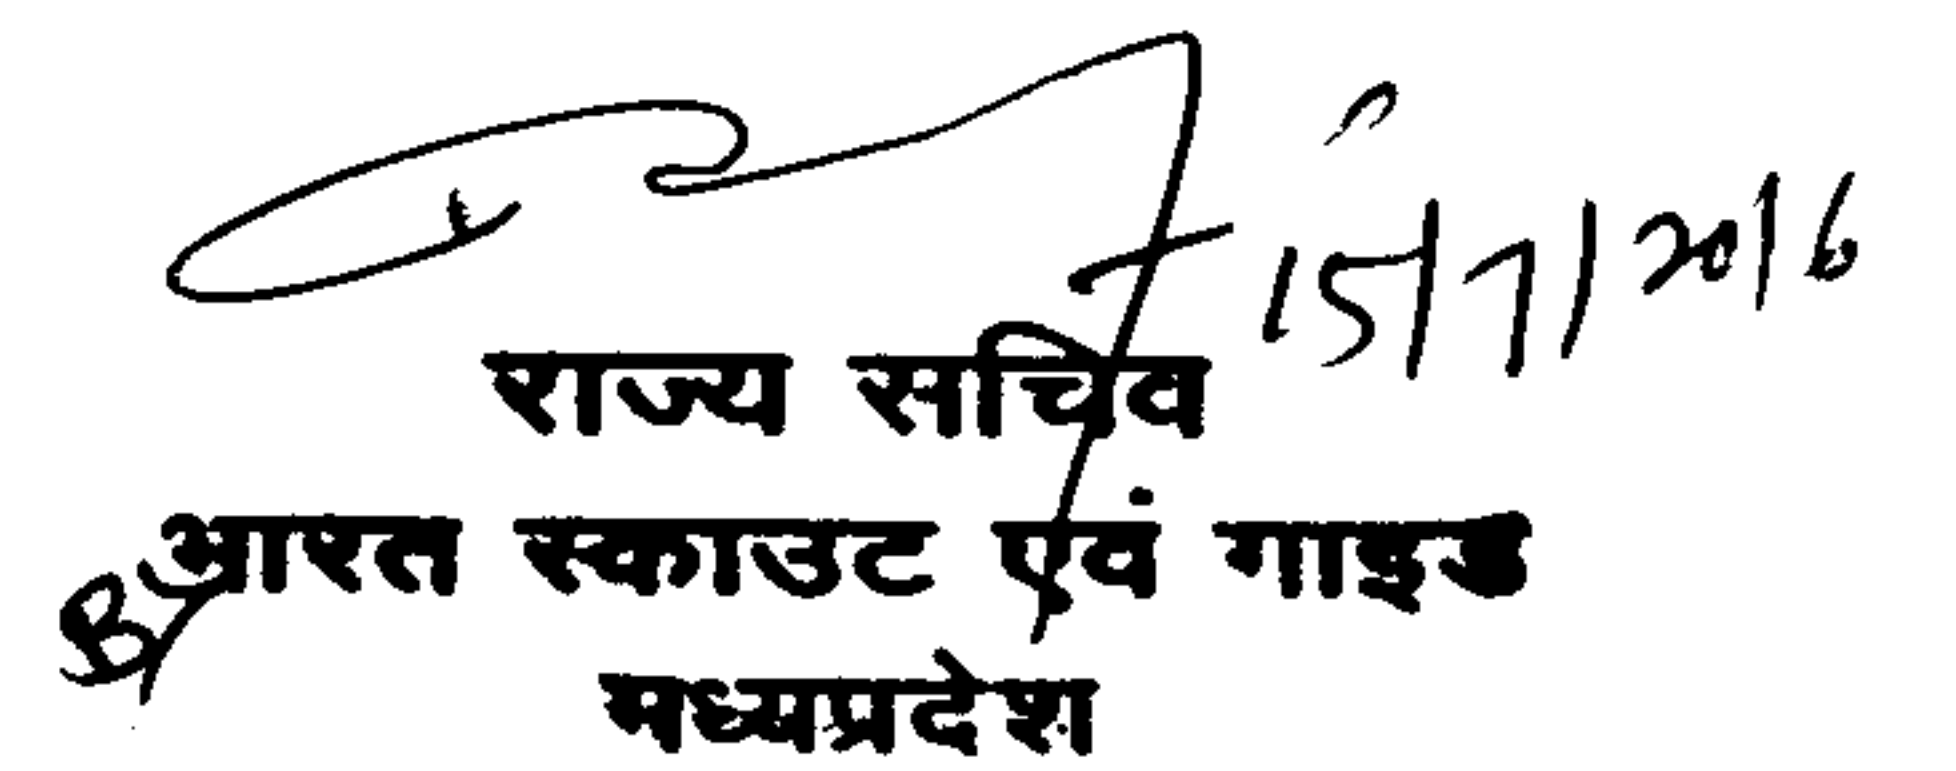 15/7/2016
राज्य सचिव
भारत स्काउट एवं गाइड
मध्यप्रदेश